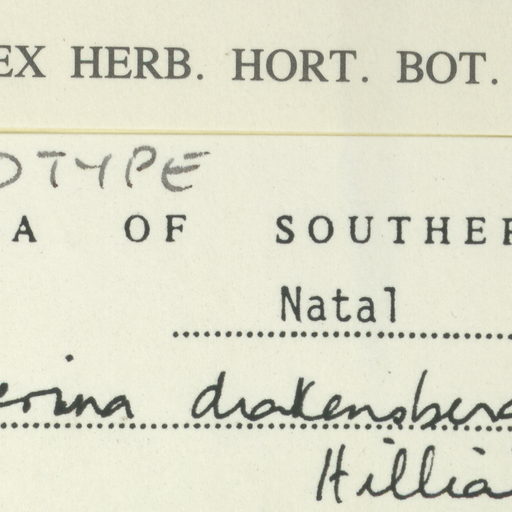 EX HERB. HORT. BOT.
OTYPE
A OF SOUTHER
Natal
erina drakensberg
Hillia